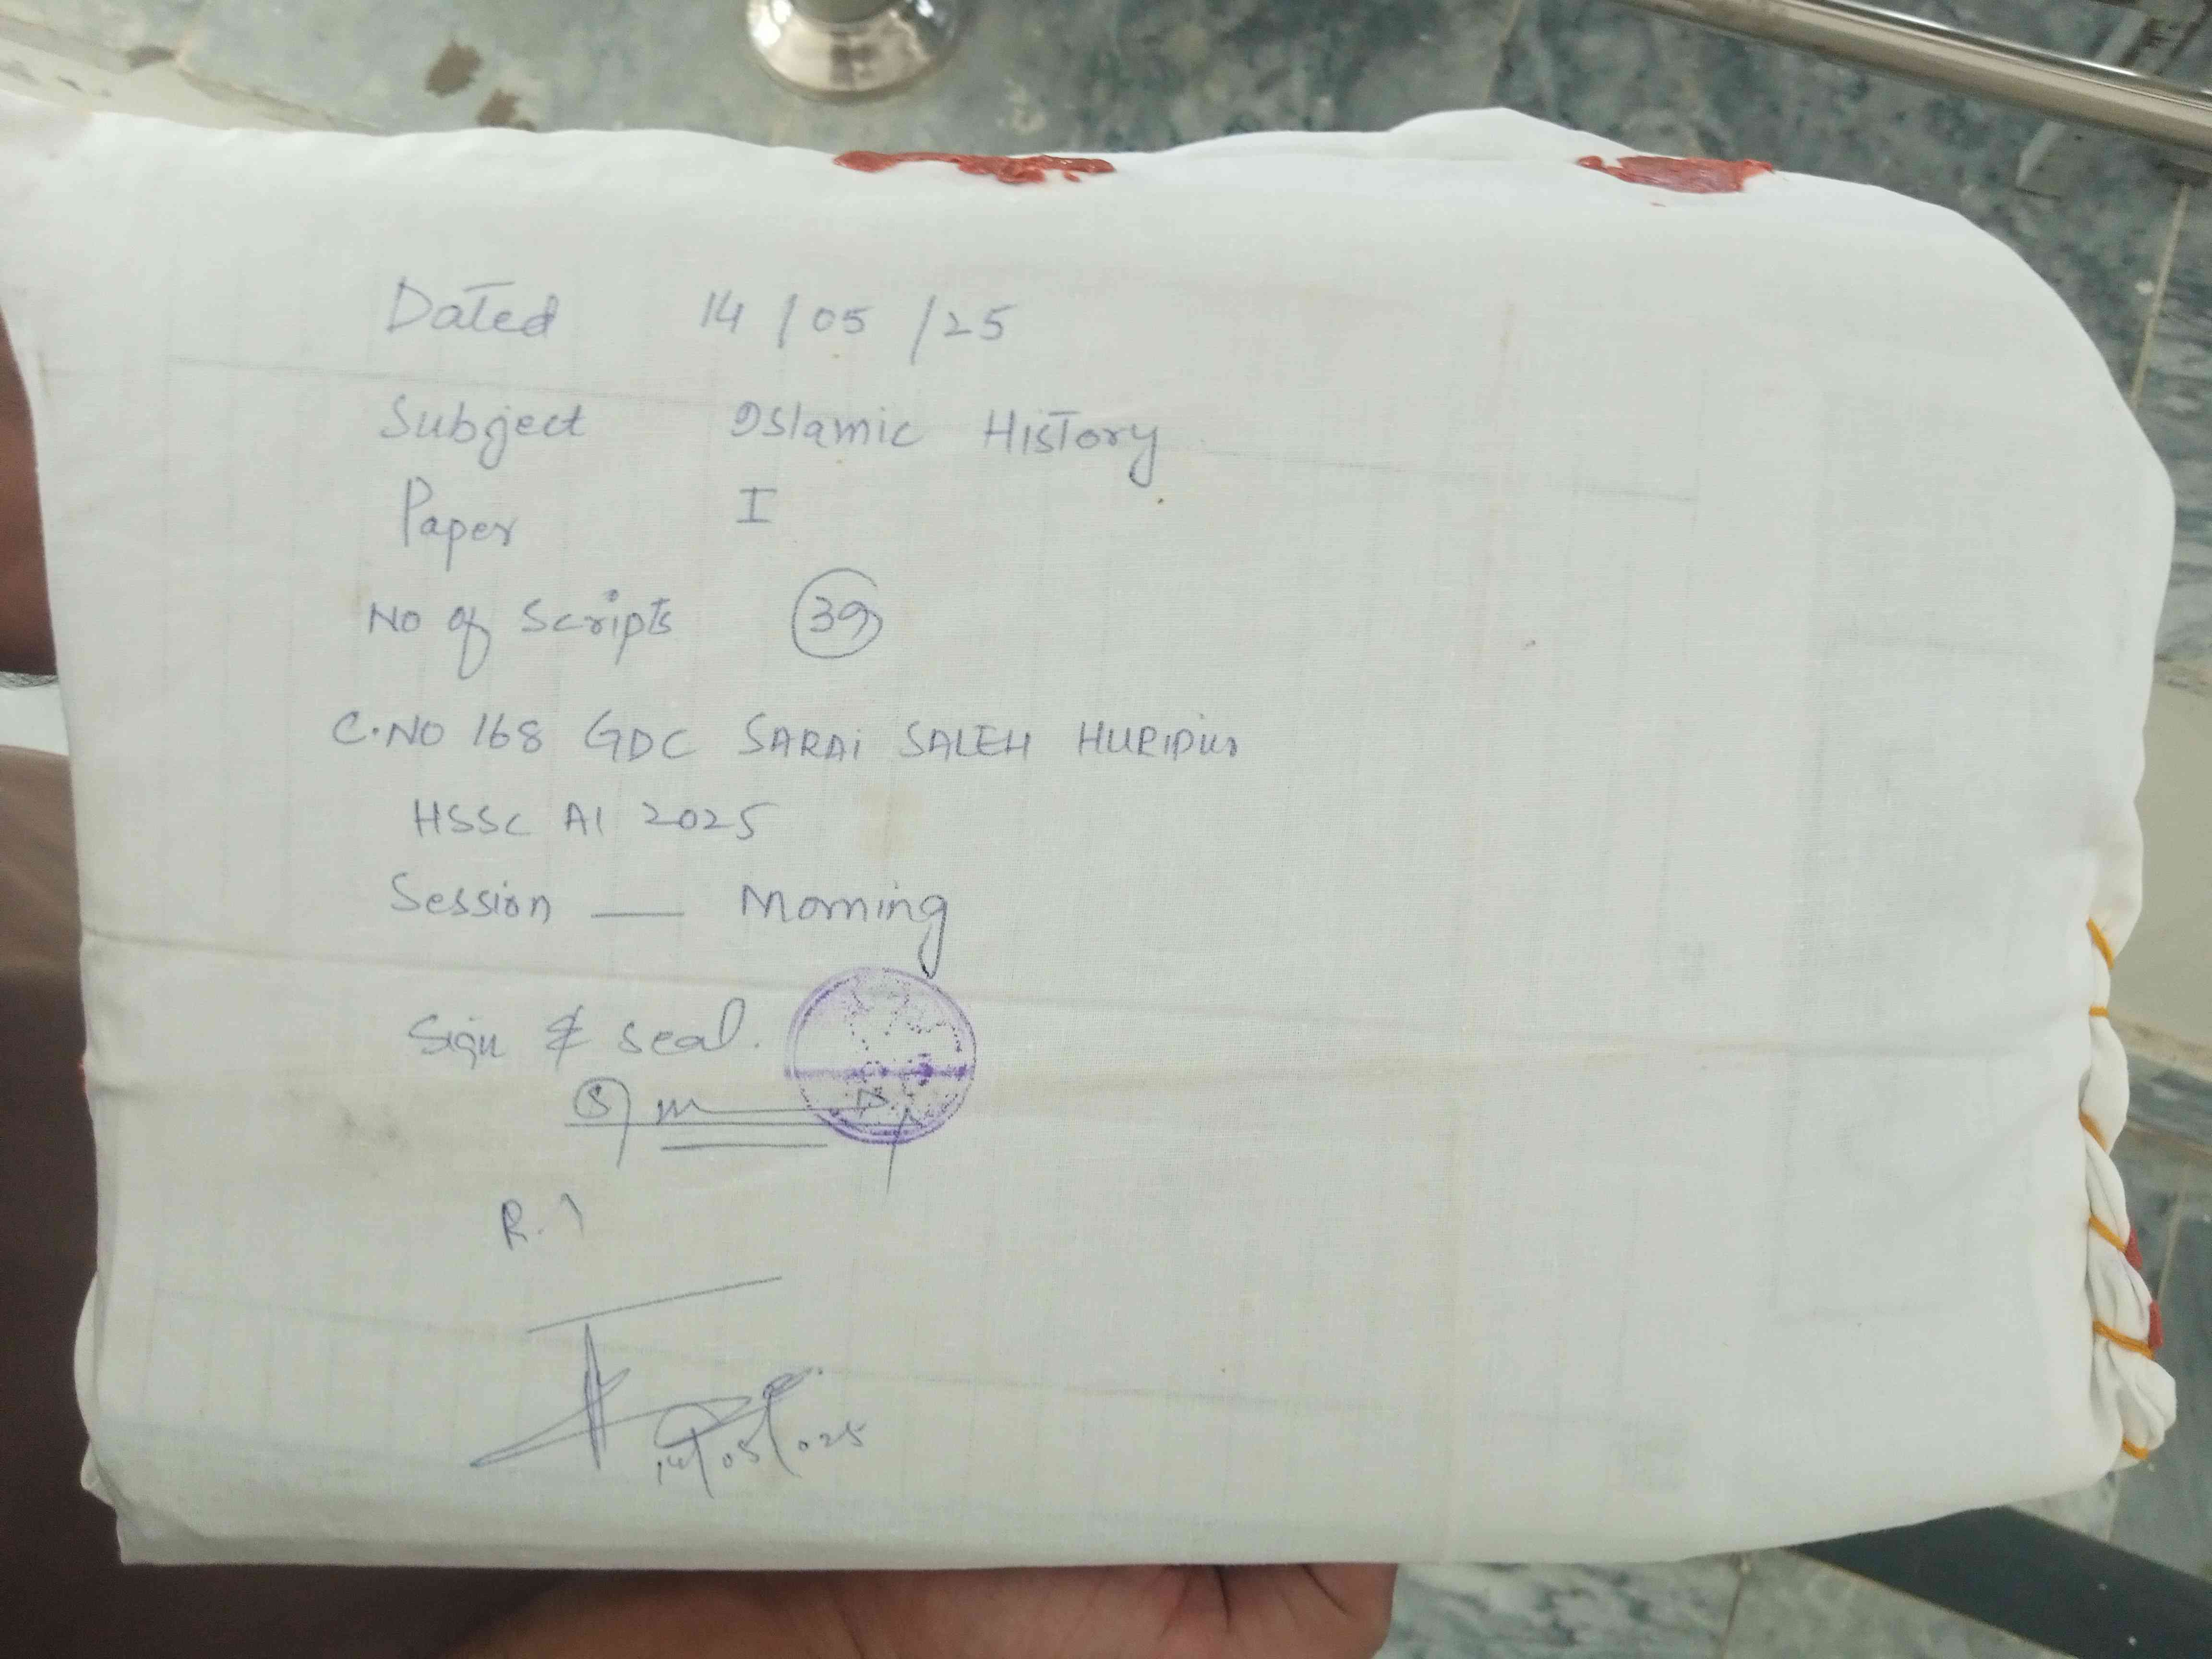 Dated 14/05/25
Subject Islamic History
Paper I
No of Scripts 39
C.NO 168 GDC SARAi SALEH HURIPUR
HSSC AI 2025
Session — Morning
Sign & seal.
R.I
14/05/025